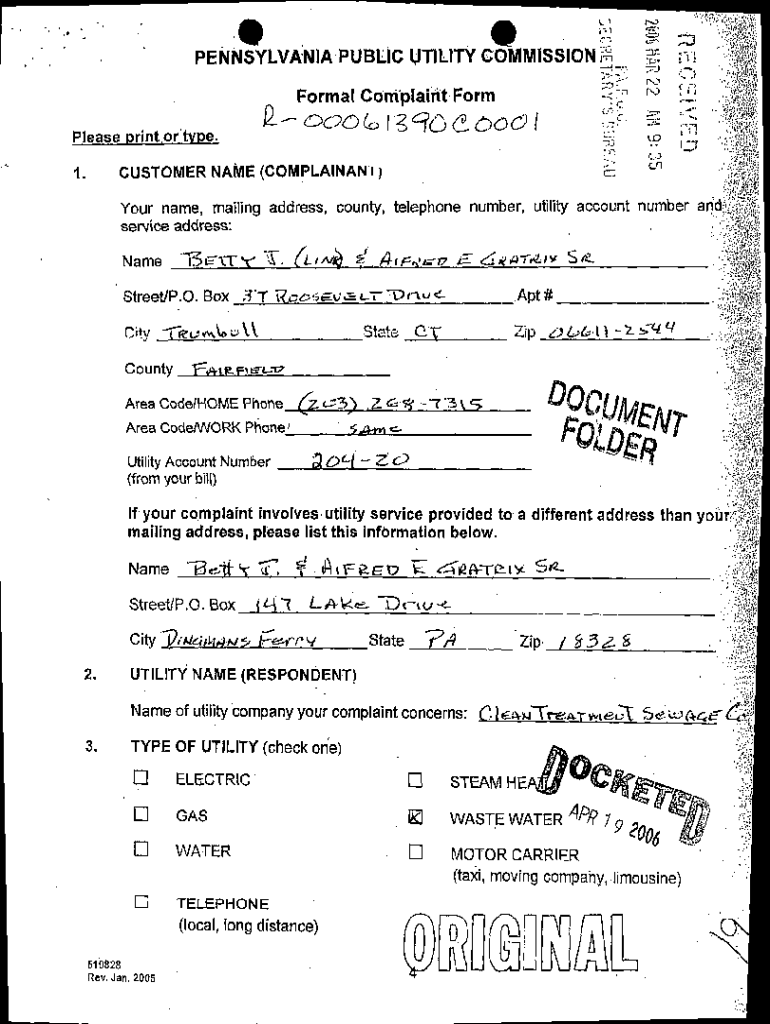 PENNSYLVANIA PUBLIC UTILITY COMMISSION
Formal Complaint Form
R-00061390C0001
RECEIVED
2006 MAR 22 AM 9:35
PA.P.U.C.
SECRETARY'S BUREAU
Please print or type.
1. CUSTOMER NAME (COMPLAINANT)
Your name, mailing address, county, telephone number, utility account number and
service address:
Name BETTY J. (LINK) & AlFRED E GRATRIX SR
Street/P.O. Box 37 ROOSEVELT Drive Apt #
City Trumbull State CT Zip 06611-2544
County FAIRFIELD
Area Code/HOME Phone (203) 268-7315
Area Code/WORK Phone SAMe
DOCUMENT
FOLDER
Utility Account Number 204-20
(from your bill)
If your complaint involves utility service provided to a different address than your
mailing address, please list this information below.
Name Betty J. & AlFRED E GRATRIX SR
Street/P.O. Box 147 LAKe Drive
City DINGIMANS Ferry State PA Zip 18328
2. UTILITY NAME (RESPONDENT)
Name of utility company your complaint concerns: CleAN TreATmeuT SewAGE Co
3. TYPE OF UTILITY (check one)
ELECTRIC STEAM HEAT
GAS WASTE WATER
WATER MOTOR CARRIER
(taxi, moving company, limousine)
DOCKETED
APR 19 2006
TELEPHONE
(local, long distance)
ORIGINAL
19
510828
Rev. Jan. 2005
4